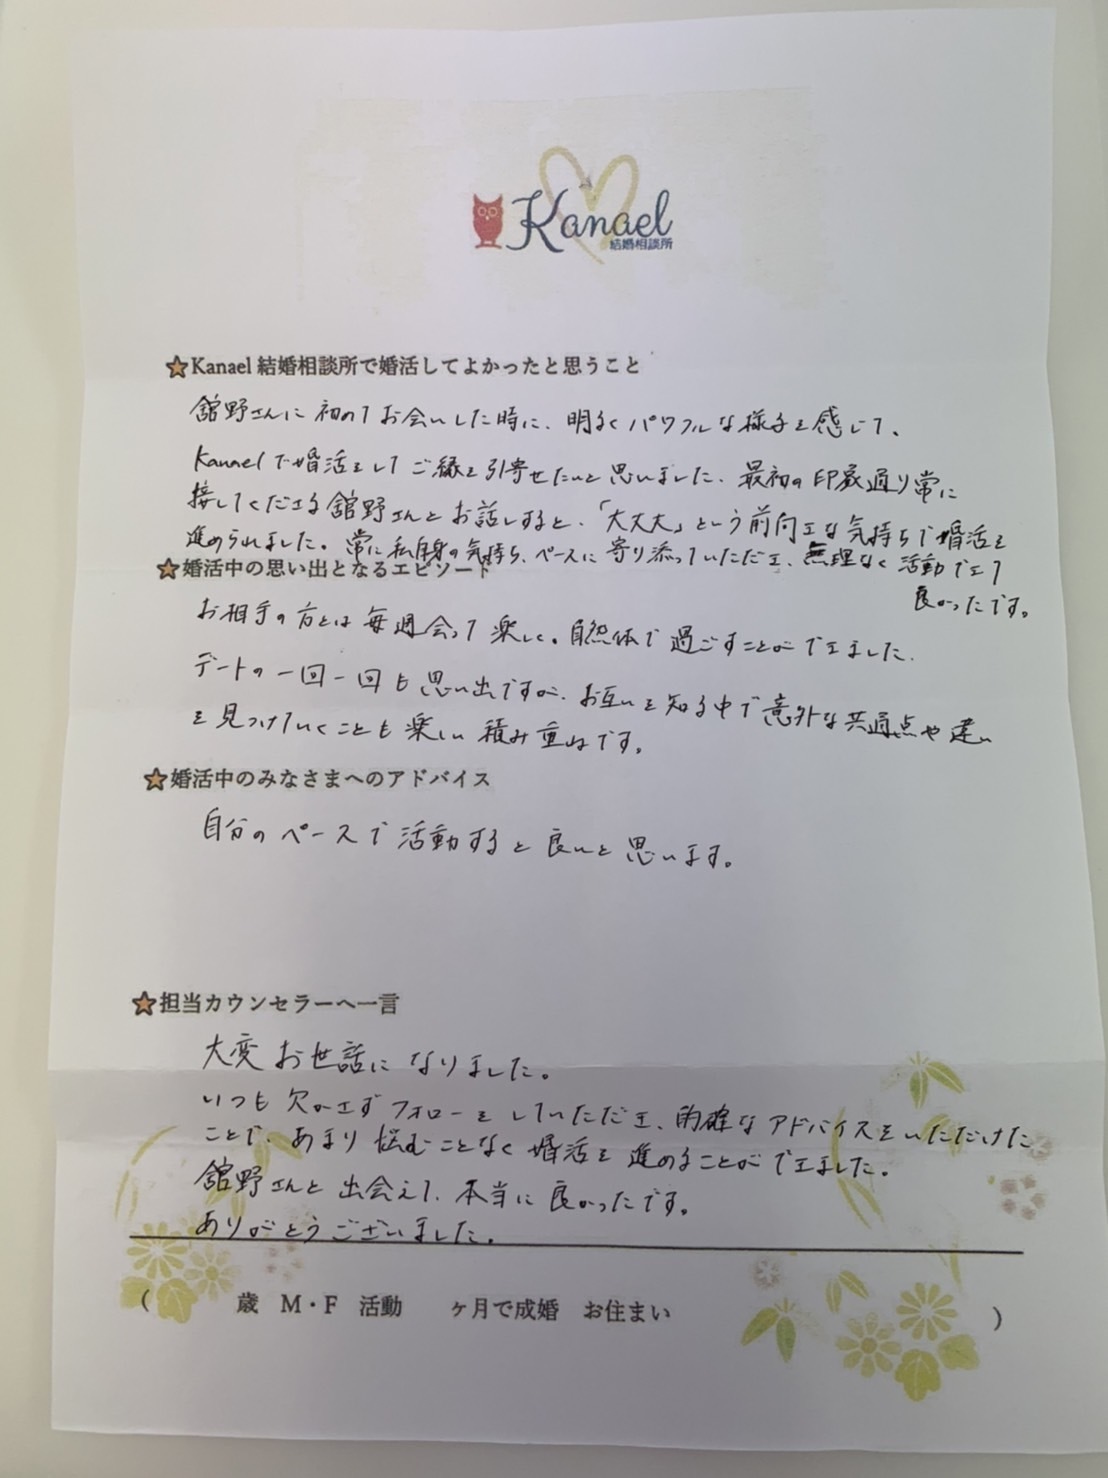 Kanael
結婚相談所
★Kanael 結婚相談所で婚活してよかったと思うこと
舘野さんに初めてお会いした時に、明るくパワフルな様子を感じて、
Kanaelで婚活をしてご縁を引寄せたいと思いました。最初の印象通り常に
接してくださる舘野さんとお話しすると、「大丈夫」という前向きな気持ちで婚活を
進められました。常に私自身の気持ち、ペースに寄り添っていただき、無理なく活動できて
良かったです。
★婚活中の思い出となるエピソード
お相手の方とは毎週会って楽しく、自然体で過ごすことができました。
デートの一回一回も思い出ですが、お互いを知る中で意外な共通点や違い
を見つけていくことも楽しい積み重ねです。
★婚活中のみなさまへのアドバイス
自分のペースで活動すると良いと思います。
★担当カウンセラーへ一言
大変お世話になりました。
いつも欠かさずフォローをしていただき、的確なアドバイスをいただけた
ことで、あまり悩むことなく婚活を進めることができました。
舘野さんと出会えて、本当に良かったです。
ありがとうございました。
( 歳 M・F 活動 ヶ月で成婚 お住まい )